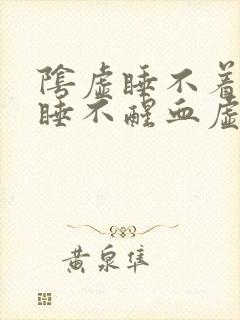 陰虛睡不着
睡不醒血虛
黃泉隼